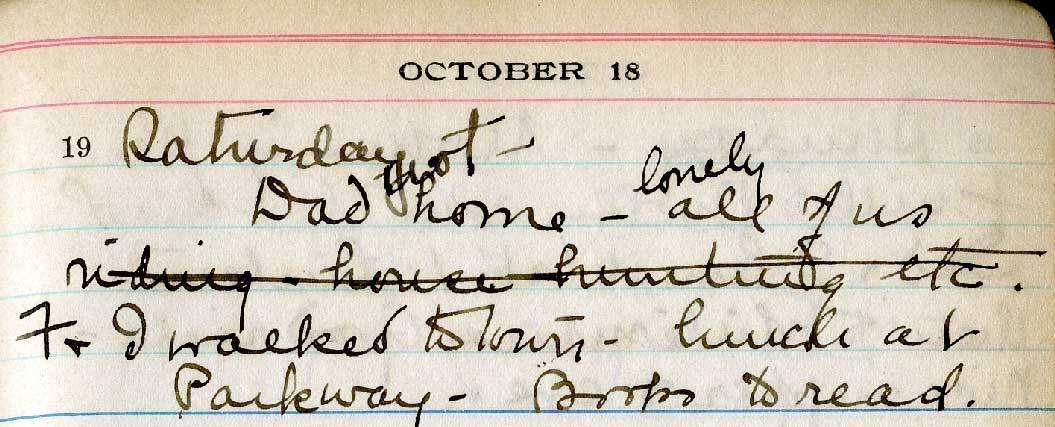 OCTOBER 18
19 Saturday
not
Dad home - lonely all of us
riding - house hunting etc.
F & I walked to town - lunch at
Parkway - Books to read.